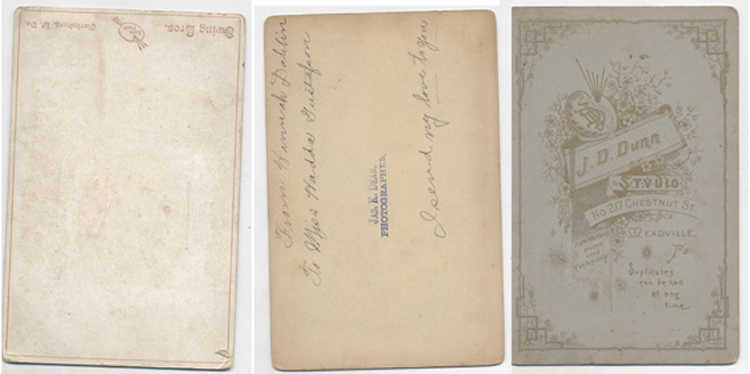 Ewing Bros.
Clarksburg, W. Va.
From Hannah Dahlin
To Miss Hadda Gustafson
I send my love to you
JAS. K. DEAN,
PHOTOGRAPHER.
J. D. Dunn
STVDIO
No. 217 CHESTNUT ST.
MEADVILLE.
Pa
Duplicates
can be had
at any
time